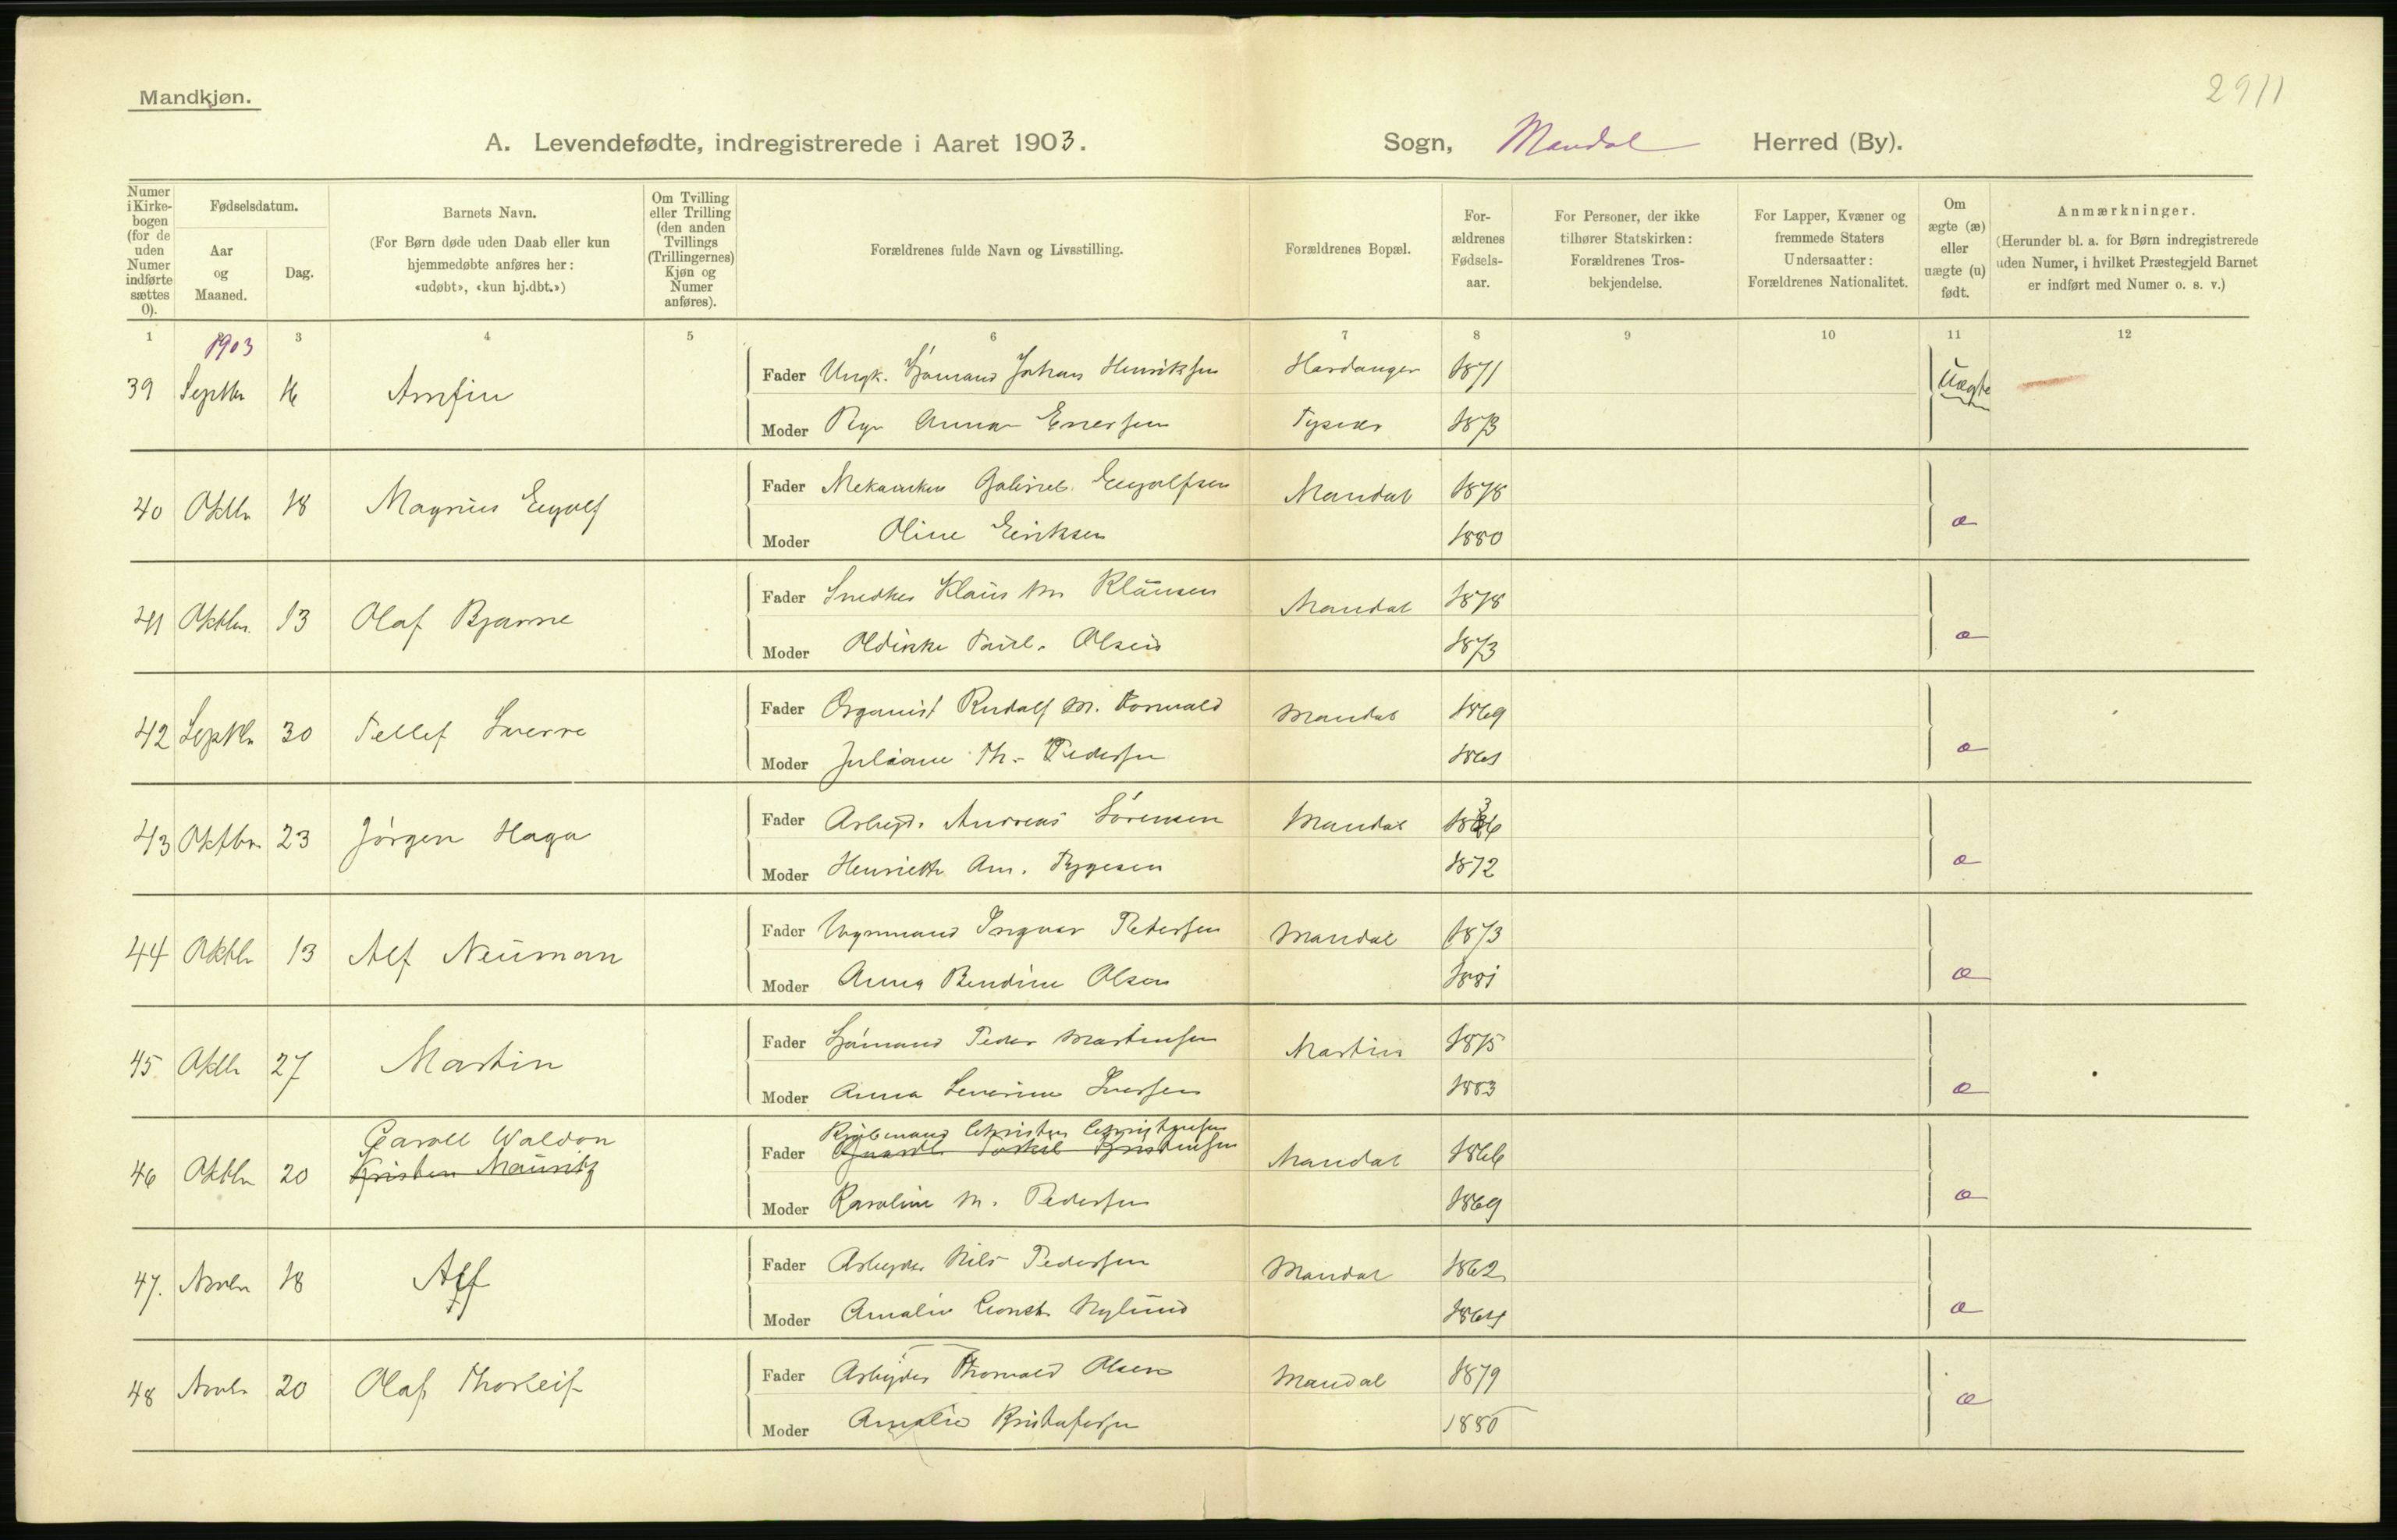 2911
Mandkjøn.
A. Levendefødte, indregistrerede i Aaret 1903. Sogn, Mandal Herred (By).
Numer i Kirkebogen (for de uden Numer indførte sættes 0).
Fødselsdatum.
Aar og Maaned.
Dag.
Barnets Navn.
(For Børn døde uden Daab eller kun hjemmedøbte anføres her: «udøbt», «kun hj.dbt.»)
Om Tvilling eller Trilling (den anden Tvillings (Trillingernes) Kjøn og Numer anføres).
Forældrenes fulde Navn og Livsstilling.
Forældrenes Bopæl.
Forældrenes Fødselsaar.
For Personer, der ikke tilhører Statskirken: Forældrenes Trosbekjendelse.
For Lapper, Kvæner og fremmede Staters Undersaatter: Forældrenes Nationalitet.
Om ægte (æ) eller uægte (u) født.
Anmærkninger.
(Herunder bl. a. for Børn indregistrerede uden Numer, i hvilket Præstegjeld Barnet er indført med Numer o. s. v.)
1 3 4 5 6 7 8 9 10 11 12
1903
39 Septbr 16 Arnfin Fader Ungk. Sjømand Johan Henriksen Hardanger 1871 Uægte
Moder Anna Enersen 1873
40 Oktbr 18 Magnus Eyolf Fader Gabriel Eyolfsen Mandal 1878 æ
Moder Oline Eriksen 1880
41 Oktbr. 13 Olaf Bjarne Fader Snedker Klaus M. Klausen Mandal 1878 æ
Moder Olsen 1873
42 Septbr 30 Tellef Sverre Fader Organist Rudolf M. Mandal 1869 æ
Moder Juliane Th. Pedersen
43 Oktbr. 23 Jørgen Haga Fader Arbeyd. Andreas Sørensen Mandal æ
Moder Henriette Am. Tygesen 1872
44 Oktbr 13 Alf Neuman Fader Ingvar Petersen Mandal 1873 æ
Moder Anna Bendine Olsen 1881
45 Oktbr 27 Martin Fader Sjømand Peder Martinsen Martin 1875 æ
Moder Anna Severine Iversen 1883
Caroll Waldon Kjøbmand Christen Christensen
46 Oktbr 20 Kristen Mauritz Fader Kristensen Mandal 1866 æ
Moder Karoline M. Pedersen 1869
47. Novbr 18 Alf Fader Arbeyder Nils Pedersen Mandal 1862 æ
Moder Amalie Const. Nylund 1864
48 Novbr 20 Olaf Thorleif Fader Arbeyder Thorvald Olsen Mandal 1879 æ
Moder Amalie Kristofersen 1880